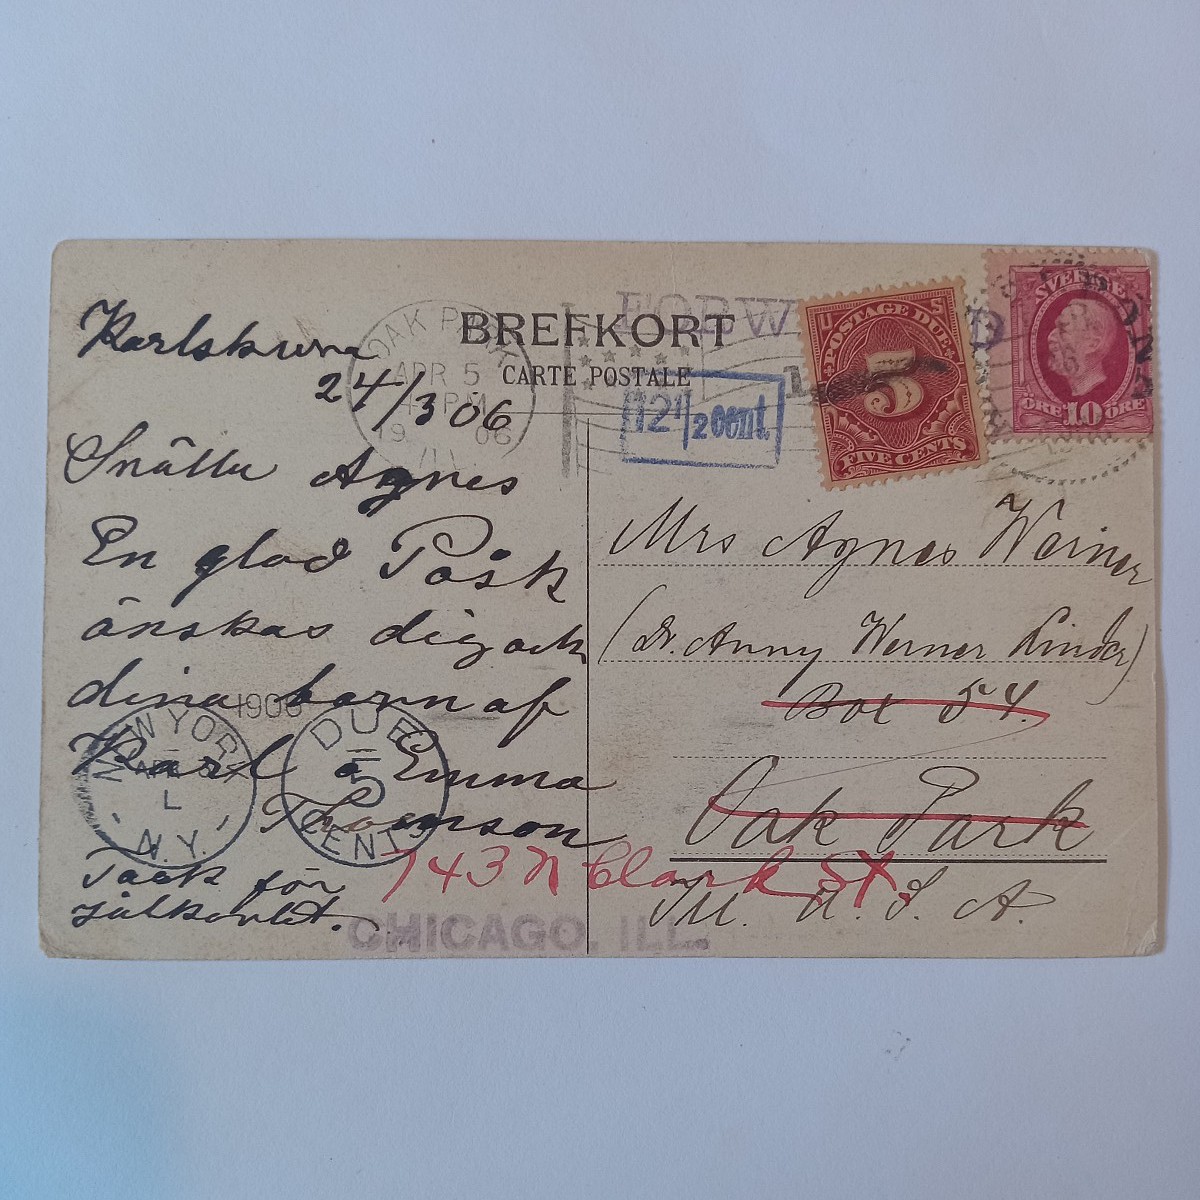 BREFKORT
CARTE POSTALE
Karlskrona
24/3 06
Snälla Agnes
En glad Påsk
önskas dig och
dina barn af
Karl o Emma
Thomson
Tack för
julkortet.
OAK PARK
APR 5
PM
19 06
ILL
FORW D
12 1/2 cent
POSTAGE DUE
U S
5
FIVE CENTS
SVERIGE
10
ÖRE ÖRE
Mrs Agnes Werner
(Dr. Anny Werner Linder)
Box 54.
Oak Park
Ill. U. S. A.
743 N Clark St.
CHICAGO, ILL.
NEW YORK
N.Y.
L
1906
DUE
5
CENTS